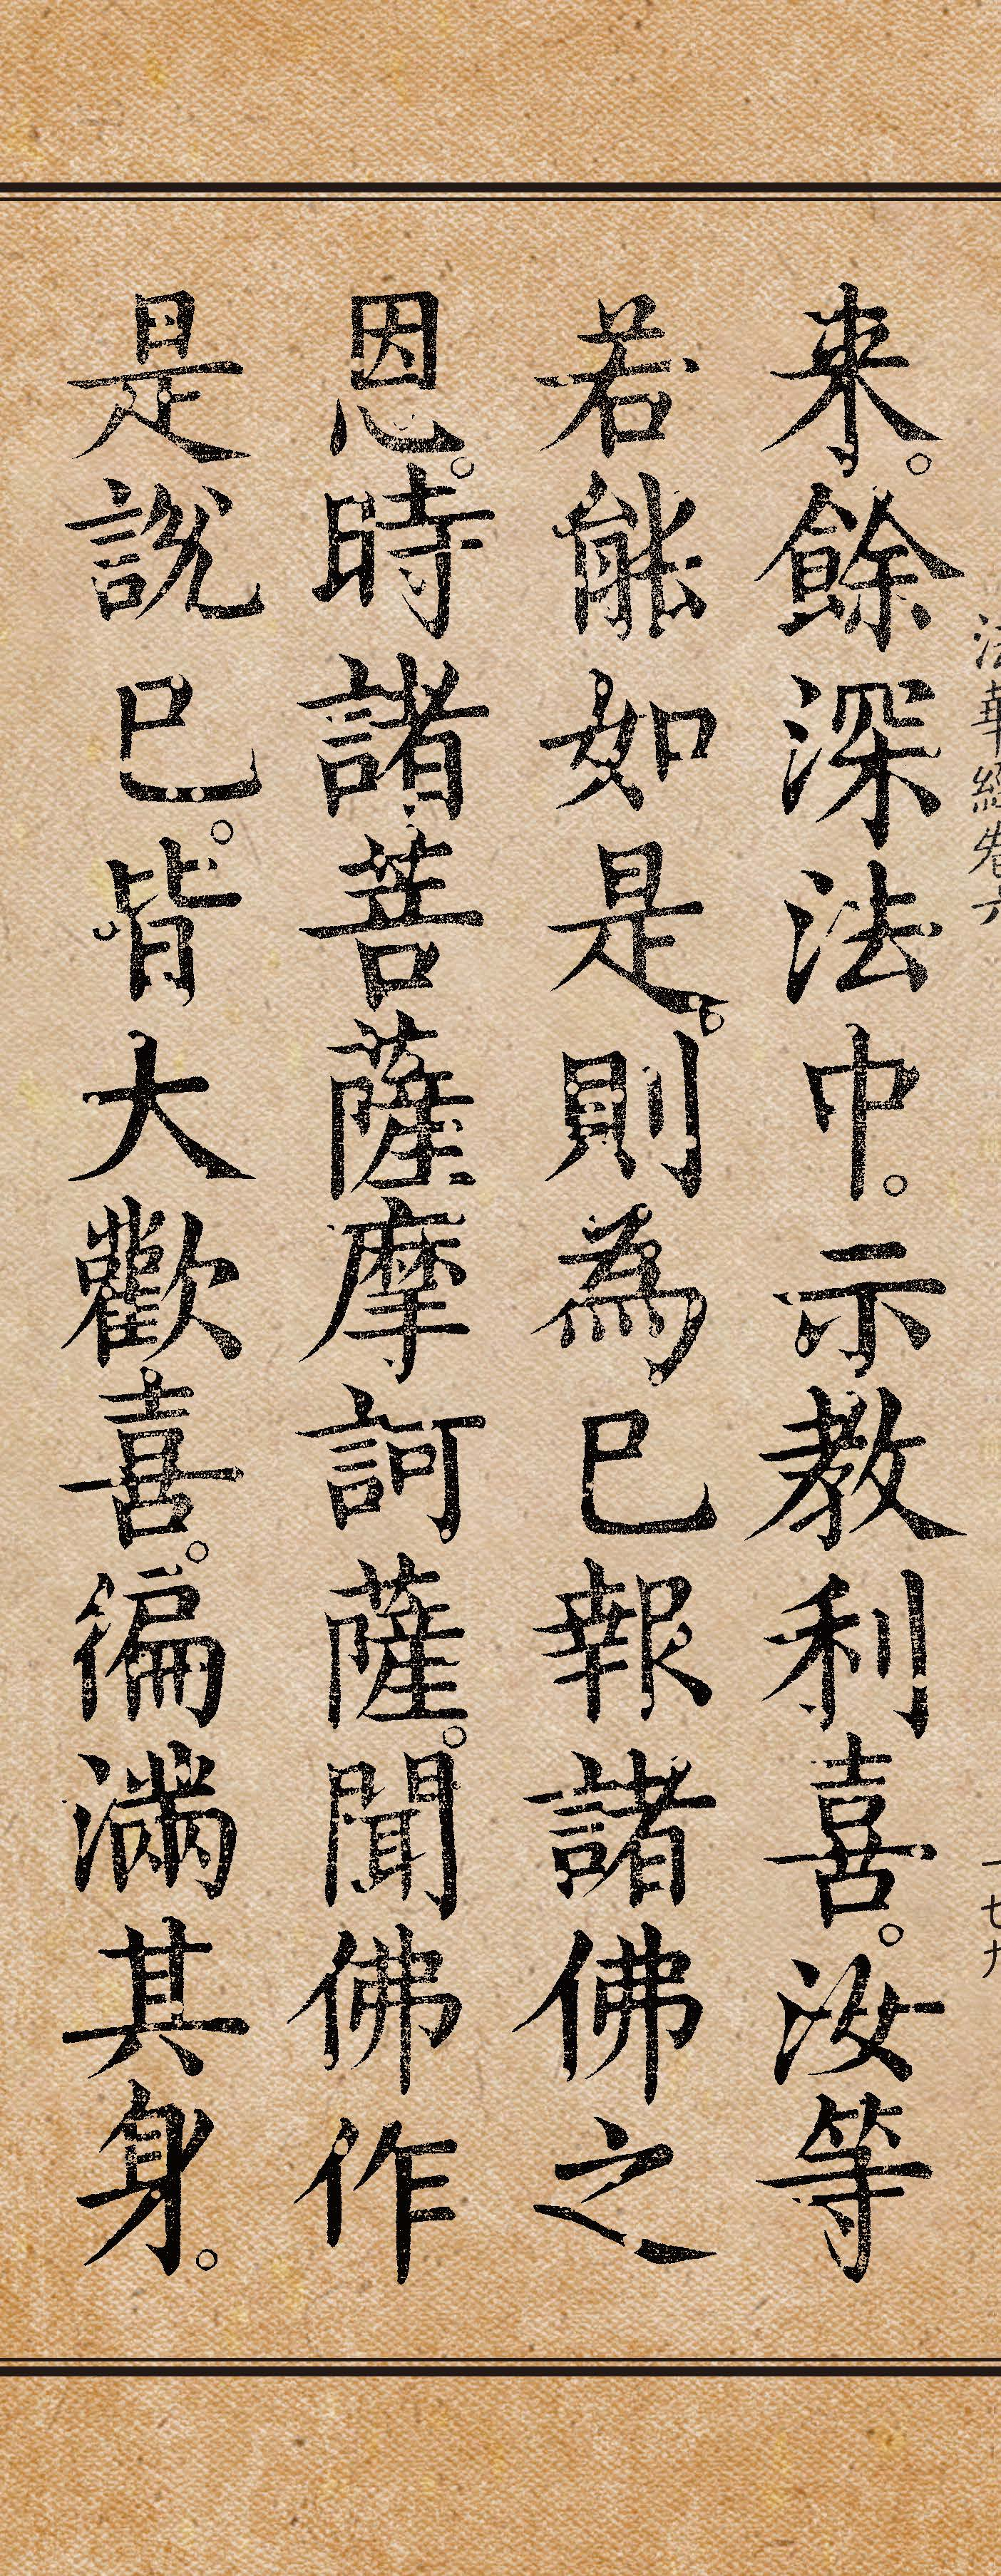 法華經卷六 一七九
来。餘深法中。示教利喜。汝等
若能如是。則為已報諸佛之
恩。時諸菩薩摩訶薩。聞佛作
是說已。皆大歡喜。徧滿其身。